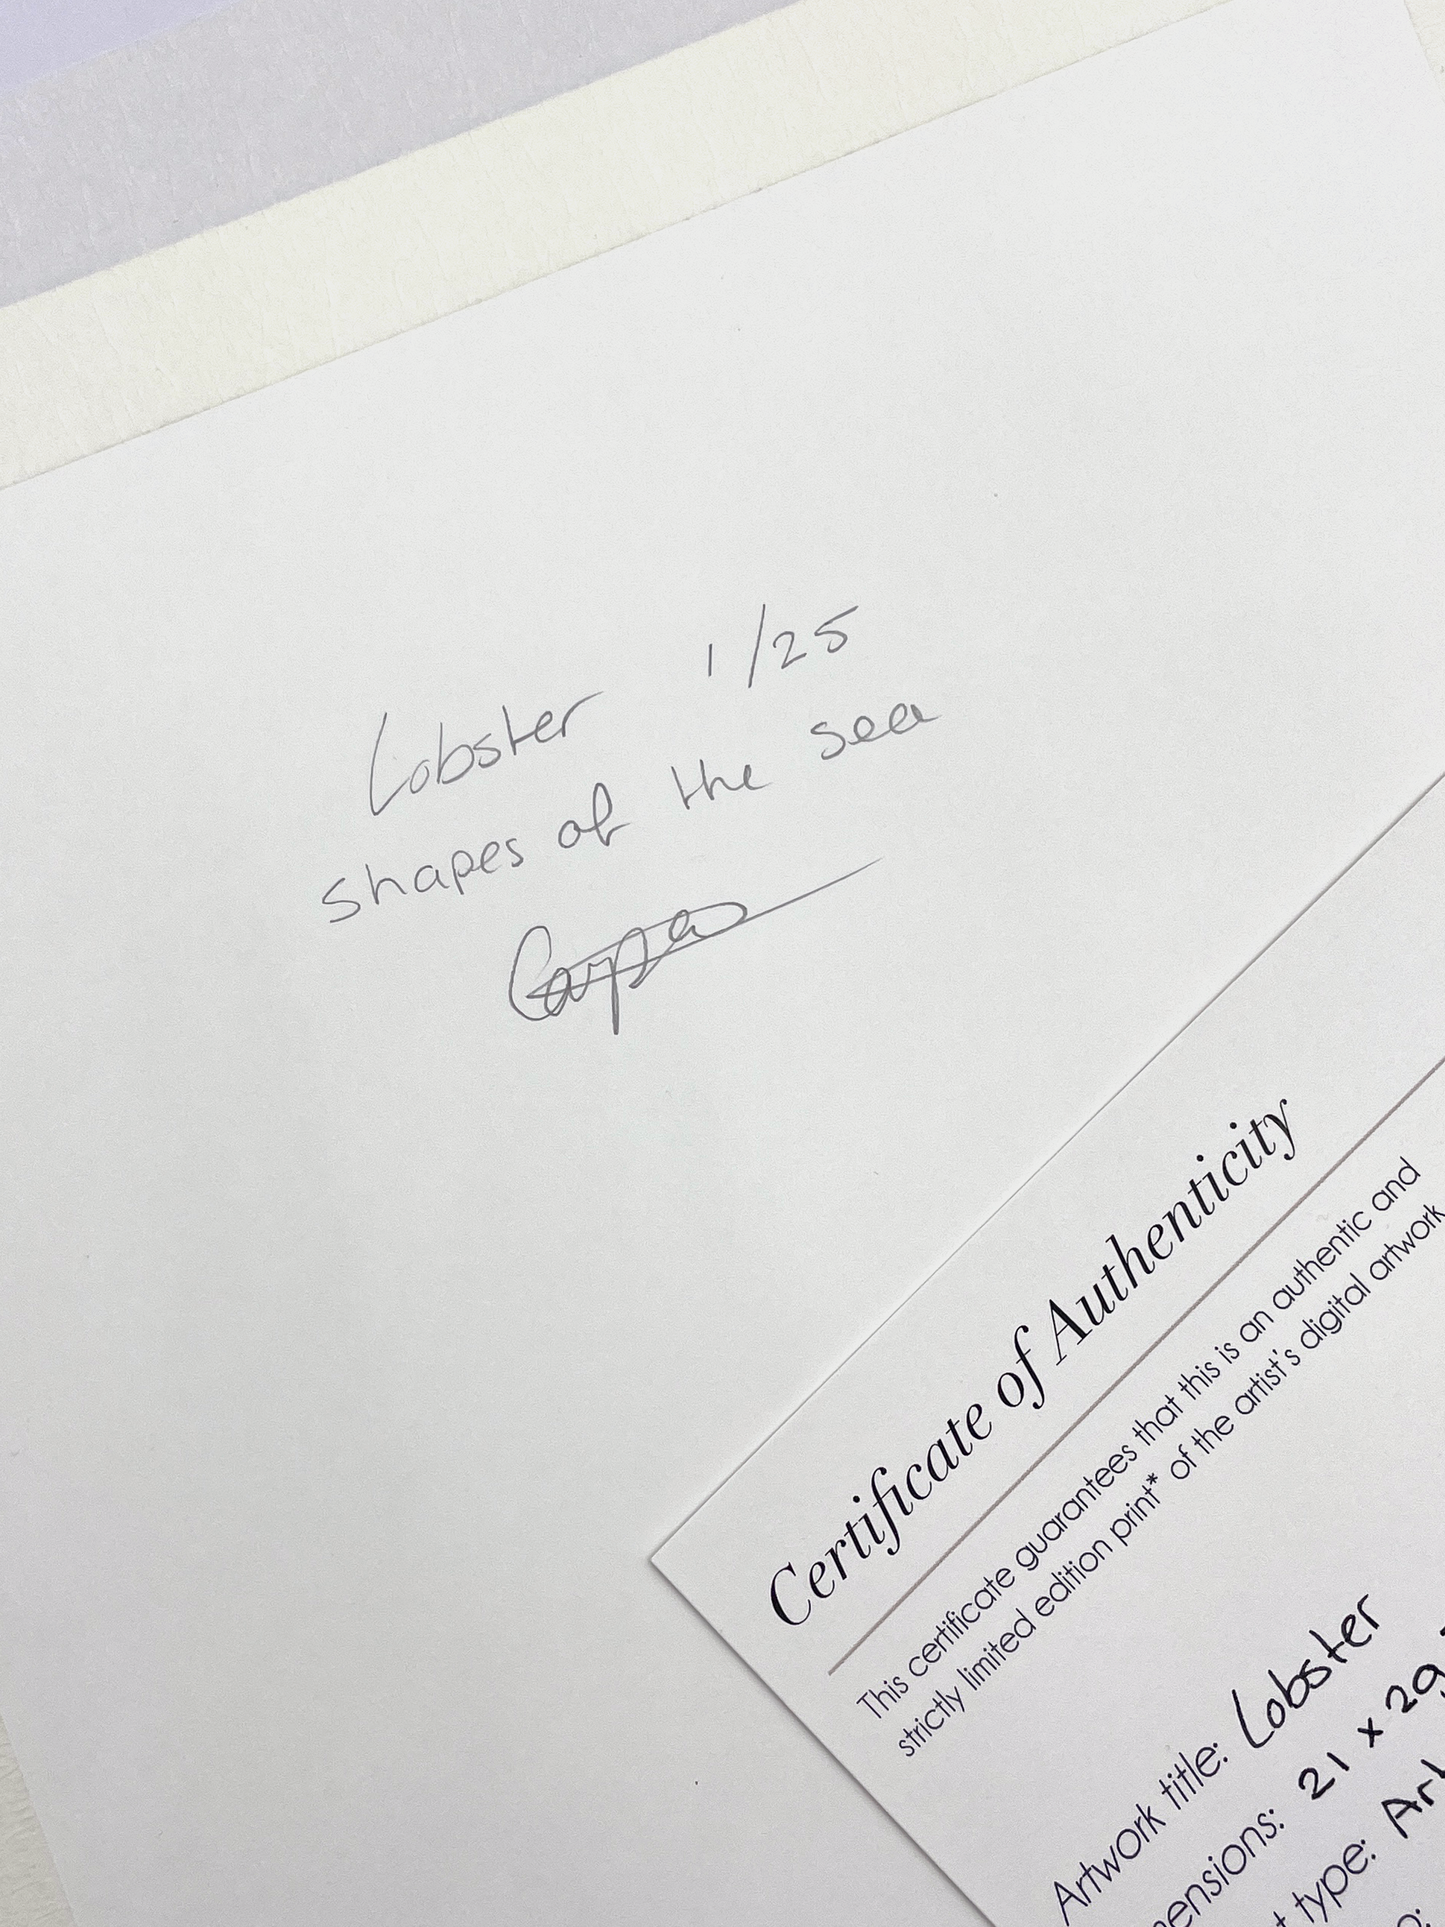 Lobster 1/25
shapes of the sea
Certificate of Authenticity
This certificate guarantees that this is an authentic and
strictly limited edition print* of the artist's digital artwork
Artwork title: Lobster
21 x 29
type: